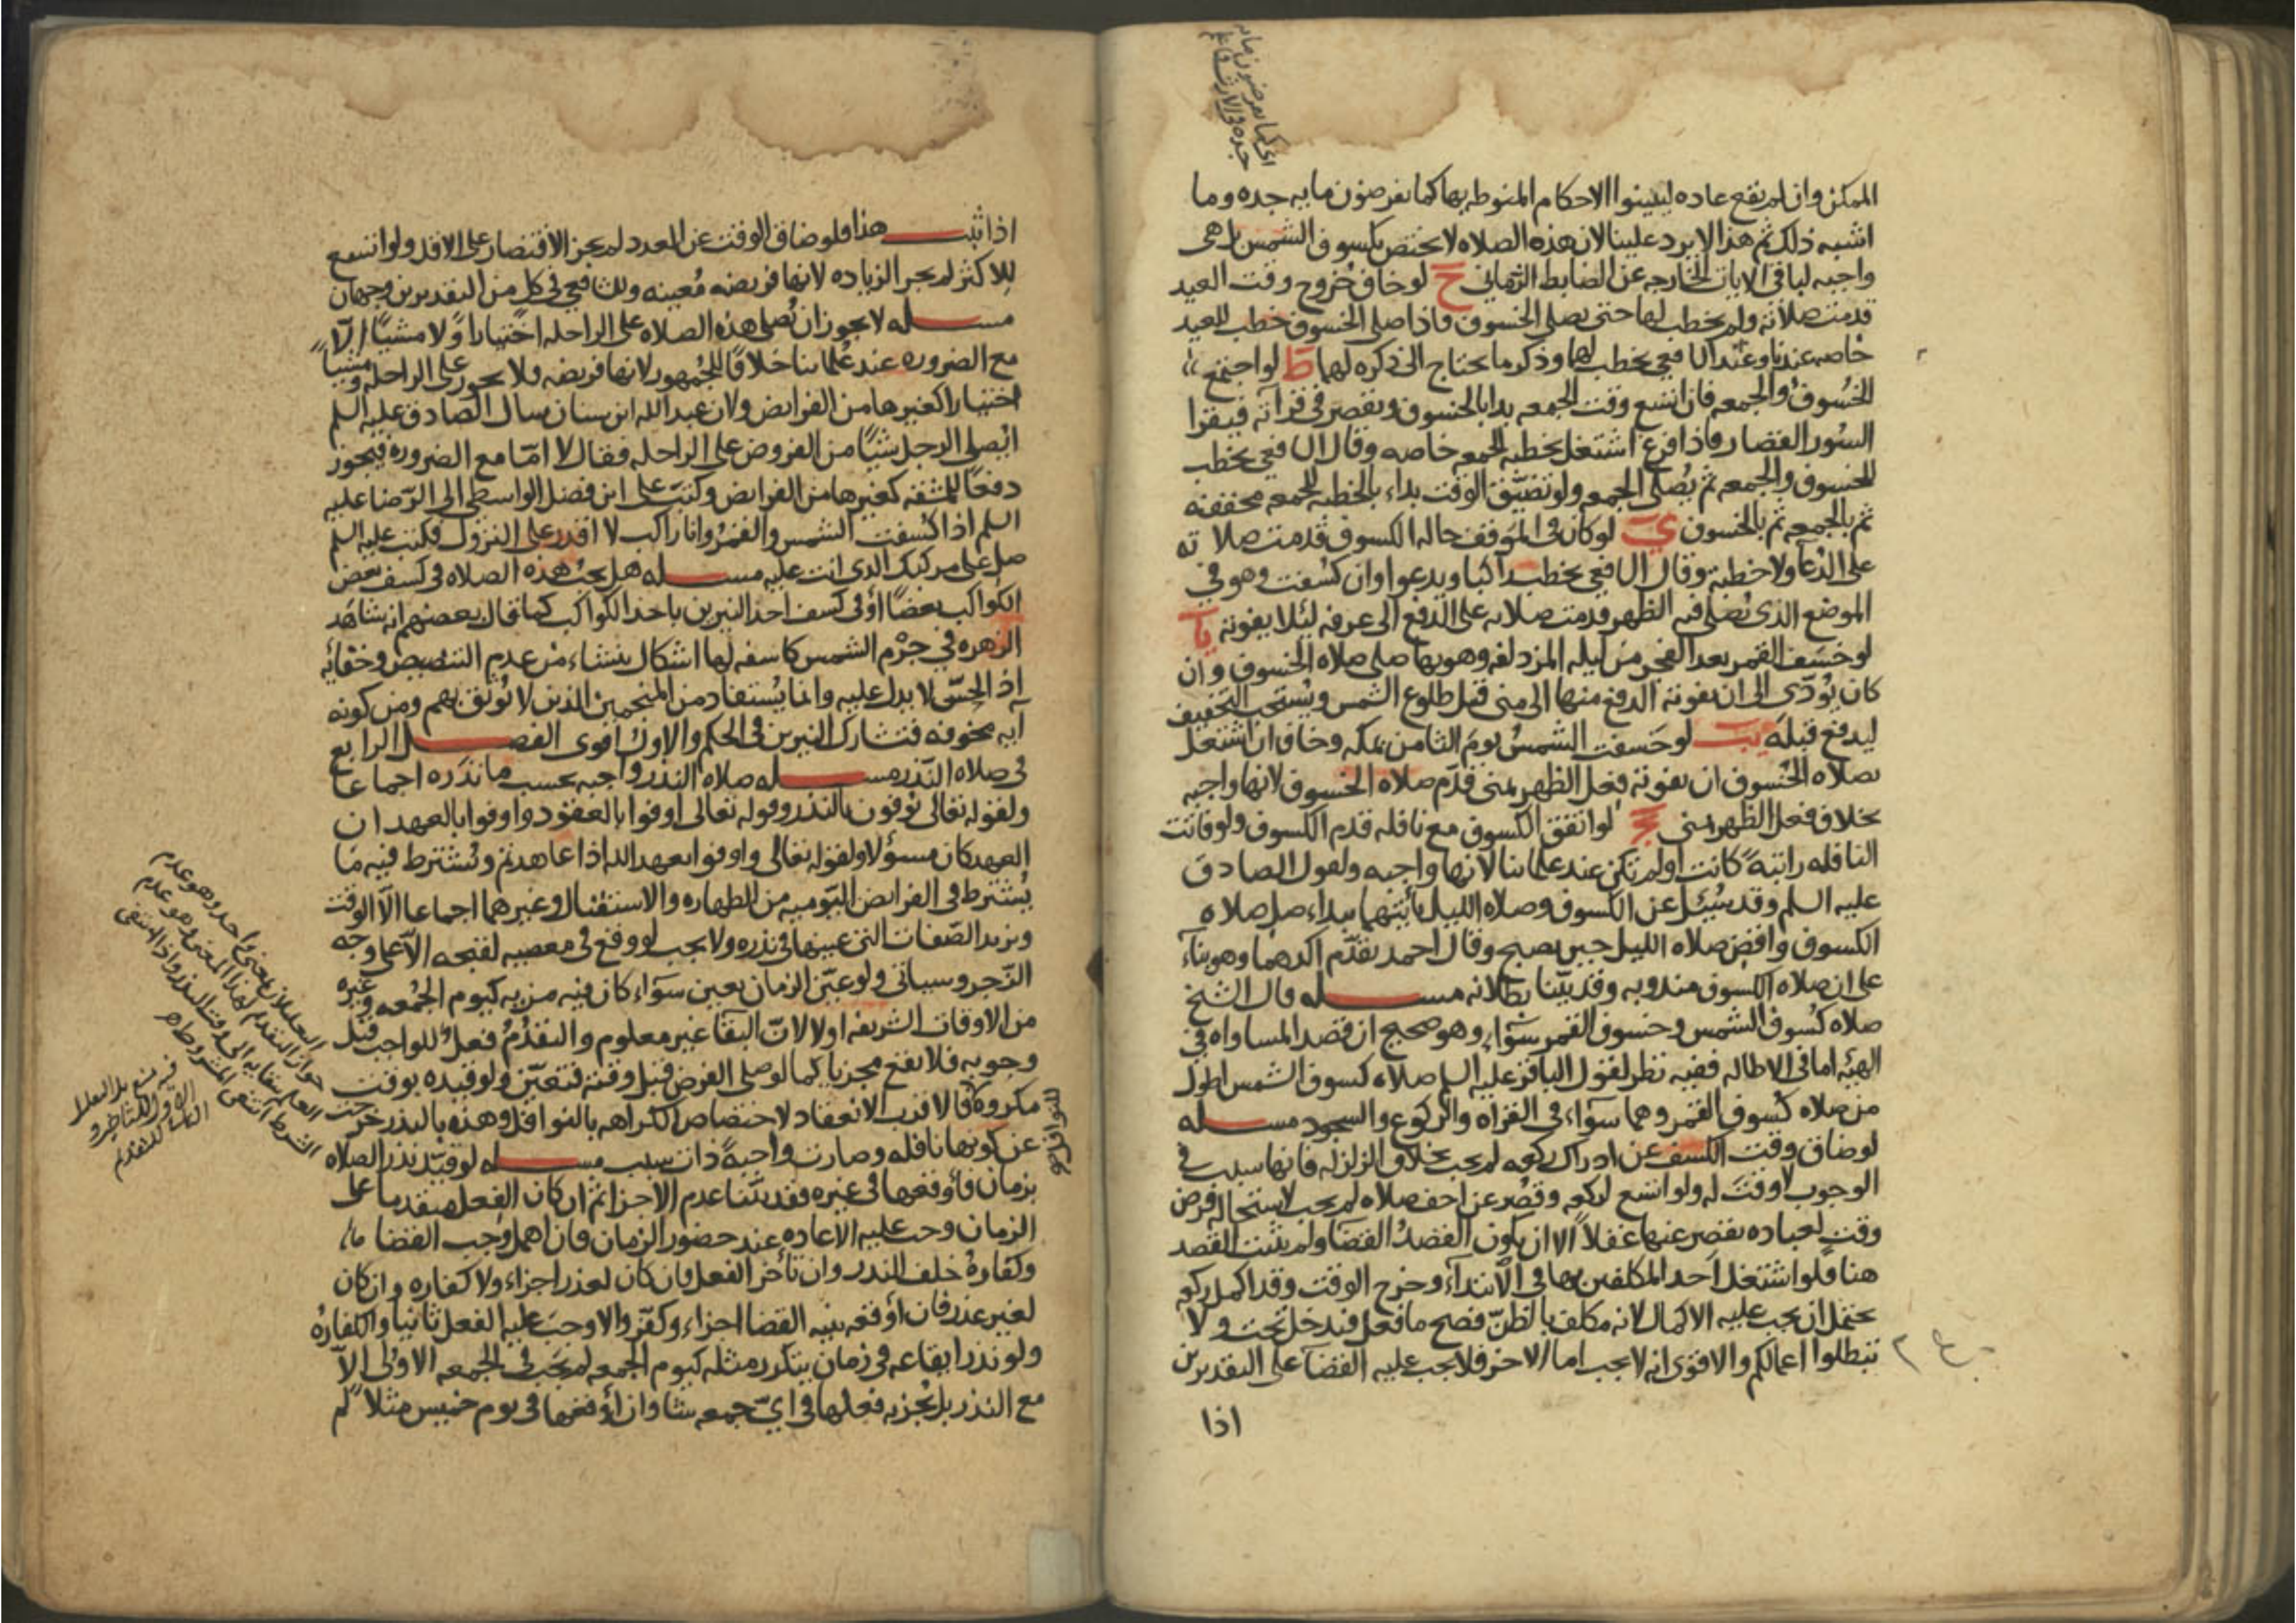 الممكن وان لم يقع عاده ليبينوا الاحكام المنوطه بها كما يفرضون مايه جده وما
اشبه ذلك ثم هذا لا يرد علينا لان هذه الصلاه لا تختص بكسوف الشمس بل هى
واجبه لباقى الايات الخارجه عن الضابط الزمانى ح لو خاف خروج وقت العيد
قدمت صلاته ولم يخطب لها حتى يصلى الخسوف فاذا صلى الخسوف خطب للعيد
خاصه عندنا وعند الشافعى يخطب لهما وذكر ما يحتاج الى ذكره لهما ط لو اجتمع
الخسوف والجمعه فان اتسع وقت الجمعه بدا بالخسوف ويقصر فى قرآته فيقرا
السور القصار فاذا فرغ اشتغل بخطبه الجمعه خاصه وقال الشافعى يخطب
للخسوف والجمعه ثم يصلى الجمعه ولو تضيق الوقت بداء بالخطبه للجمعه مخففه
ثم بالجمعه ثم بالخسوف ى لو كان فى الموقف حاله الكسوف قدمت صلاته
على الدعآ ولا خطبه وقال الشافعى يخطب راكبا ويدعوا وان كسفت وهو فى
الموضع الذى تصلى فيه الظهر قدمت صلاته على الدفع الى عرفه لئلا يفوته يا
لو خسف القمر بعد الفجر من ليله المزدلفه وهو بها صلى صلاه الخسوف وان
كان يؤدى الى ان يفوته الدفع منها الى منى قبل طلوع الشمس ويستحب التخفيف
ليدفع قبله يب لو خسفت الشمس يوم الثامن بمكه وخاف ان اشتغل
بصلاه الخسوف ان يفوته فعل الظهر بمنى قدم صلاه الخسوف لانها واجبه
بخلاف فعل الظهر بمنى يج لو اتفق الكسوف مع نافله قدم الكسوف ولو فاتت
النافله راتبة كانت او لم تكن عند علمائنا لانها واجبه ولقول الصادق
عليه السلم وقد سئل عن الكسوف وصلاه الليل بايتهما يبداء صل صلاه
الكسوف واقض صلاه الليل حين يصبح وقال احمد يقدم آكدهما وهو بناء
على ان صلاه الكسوف مندوبه وقد بينا بطلانه مسله قال الشيخ
صلاه كسوف الشمس وخسوف القمر سوآء وهو صحيح ان قصد المساواه فى
الهيئه اما فى الاطاله ففيه نظر لقول الباقر عليه السلم صلاه كسوف الشمس اطول
من صلاه كسوف القمر وهما سوآء فى القراه والركوع والسجود مسله
لو ضاق وقت الكسف عن ادراك ركعه لم يجب بخلاف الزلزله فانها سبب فى
الوجوب لا وقت له ولو اتسع لركعه وقصر عن اخف صلاه لم يجب لاستحاله فرض
وقت لعباده يقصر عنها عقلا الا ان يكون القصد القضا ولم يثبت القصد
هنا فلو اشتغل احد المكلفين بها فى الابتدآء وخرج الوقت وقد اكمل ركعه
يحتمل ان يجب عليه الاكمال لانه مكلف بالظن فصح ما فعل فندخل تحت ولا
تبطلوا اعمالكم والاقوى انه لا يجب اما الاخر فلا يجب عليه القضآ على التقديرين
اذا
اذا ثبت هذا فلو ضاق الوقت عن العدد لم يجز الاقتصار على الاقل ولو اتسع
للاكثر لم يجز الزياده لانها فريضه معينه وللشافعى فى كل من التقديرين وجهان
مسله لا يجوز ان تصلى هذه الصلاه على الراحله اختيارا ولا مشيا الا
مع الضروره عند علمائنا خلافا للجمهور لانها فريضه فلا يجوز على الراحله ومشيا
اختيارا كغيرها من الفرايض ولان عبد الله ابن سنان سال الصادق عليه السلم
ايصلى الرجل شيئا من الفروض على الراحله فقال لا اما مع الضروره فيجوز
دفعا للمشقه كغيرها من الفرايض وكتب على ابن فضل الواسطى الى الرضا عليه
السلم اذا كسفت الشمس والقمر وانا راكب لا اقدر على النزول فكتب عليه السلم
صل على مركبك الذى انت عليه مسله هل يجب هذه الصلاه فى كسف بعض
الكواكب بعضا او فى كسف احد النيرين باحد الكواكب كما قال بعضهم انه شاهد
الزهره فى جرم الشمس كاسفه لها اشكال ينشاء من عدم التنصيص وخفائه
اذ الحس لا يدل عليه وانما يستفاد من المنجمين الذين لا يوثق بهم ومن كونه
آيه مخوفه فتشارك النيرين فى الحكم والاول اقوى الفصل الرابع
فى صلاه النذر مسله صلاه النذر واجبه بحسب ما نذره اجماعا
ولقوله تعالى يوفون بالنذر وقوله تعالى اوفوا بالعقود واوفوا بالعهد ان
العهد كان مسؤلا ولقوله تعالى واوفوا بعهد الله اذا عاهدتم ويشترط فيه ما
يشترط فى الفرايض اليوميه من الطهاره والاستقبال وغيرهما اجماعا الا الوقت
ويزيد الصفات التى عينها فى نذره ولا يجب لو وقع فى معصيه لقبحه الا على وجه
الزجر وسياتى ولو عين الزمان تعين سوآء كان فيه مزيه كيوم الجمعه وغيره
من الاوقات الشريفه او لا لان البقآ غير معلوم والتقدم فعل للواجب قبل
وجوبه فلا يقع مجزيا كما لو صلى الفرض قبل وقته فتعين ولو قيده بوقت
مكروه فالاقرب الانعقاد لاختصاص الكراهه بالنوافل وهذه بالنذر خرجت
عن كونها نافله وصارت واجبة ذات سبب مسله لو قيد نذر الصلاه
بزمان فاوقعها فى غيره فقد بينا عدم الاجزا ثم ان كان الفعل متقدما على
الزمان وجب عليه الاعاده عند حضور الزمان فان اهمل وجب القضا
وكفارة خلف النذر وان تأخر الفعل فان كان لعذر اجزاء ولا كفاره وان كان
لغير عذر فان أوقعه بنيه القضا اجزاء وكفر والا وجب عليه الفعل ثانيا والكفارة
ولو نذر ايقاعه فى زمان يتكرر مثله كيوم الجمعه لم يجب فى الجمعه الاولى الا
مع النذر بل يجزيه فعلها فى اى جمعه شا وان أوقعها فى يوم خميس مثلا لم